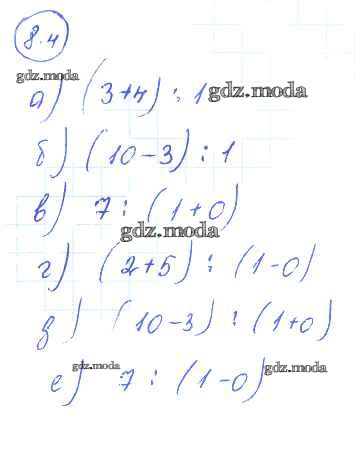 8.4
gdz.moda
а) (3+4) : 1 gdz.moda
б) (10-3) : 1
в) 7 : (1+0)
gdz.moda
г) (2+5) : (1-0)
д) (10-3) : (1+0)
gdz.moda
е) 7 : (1-0) gdz.moda